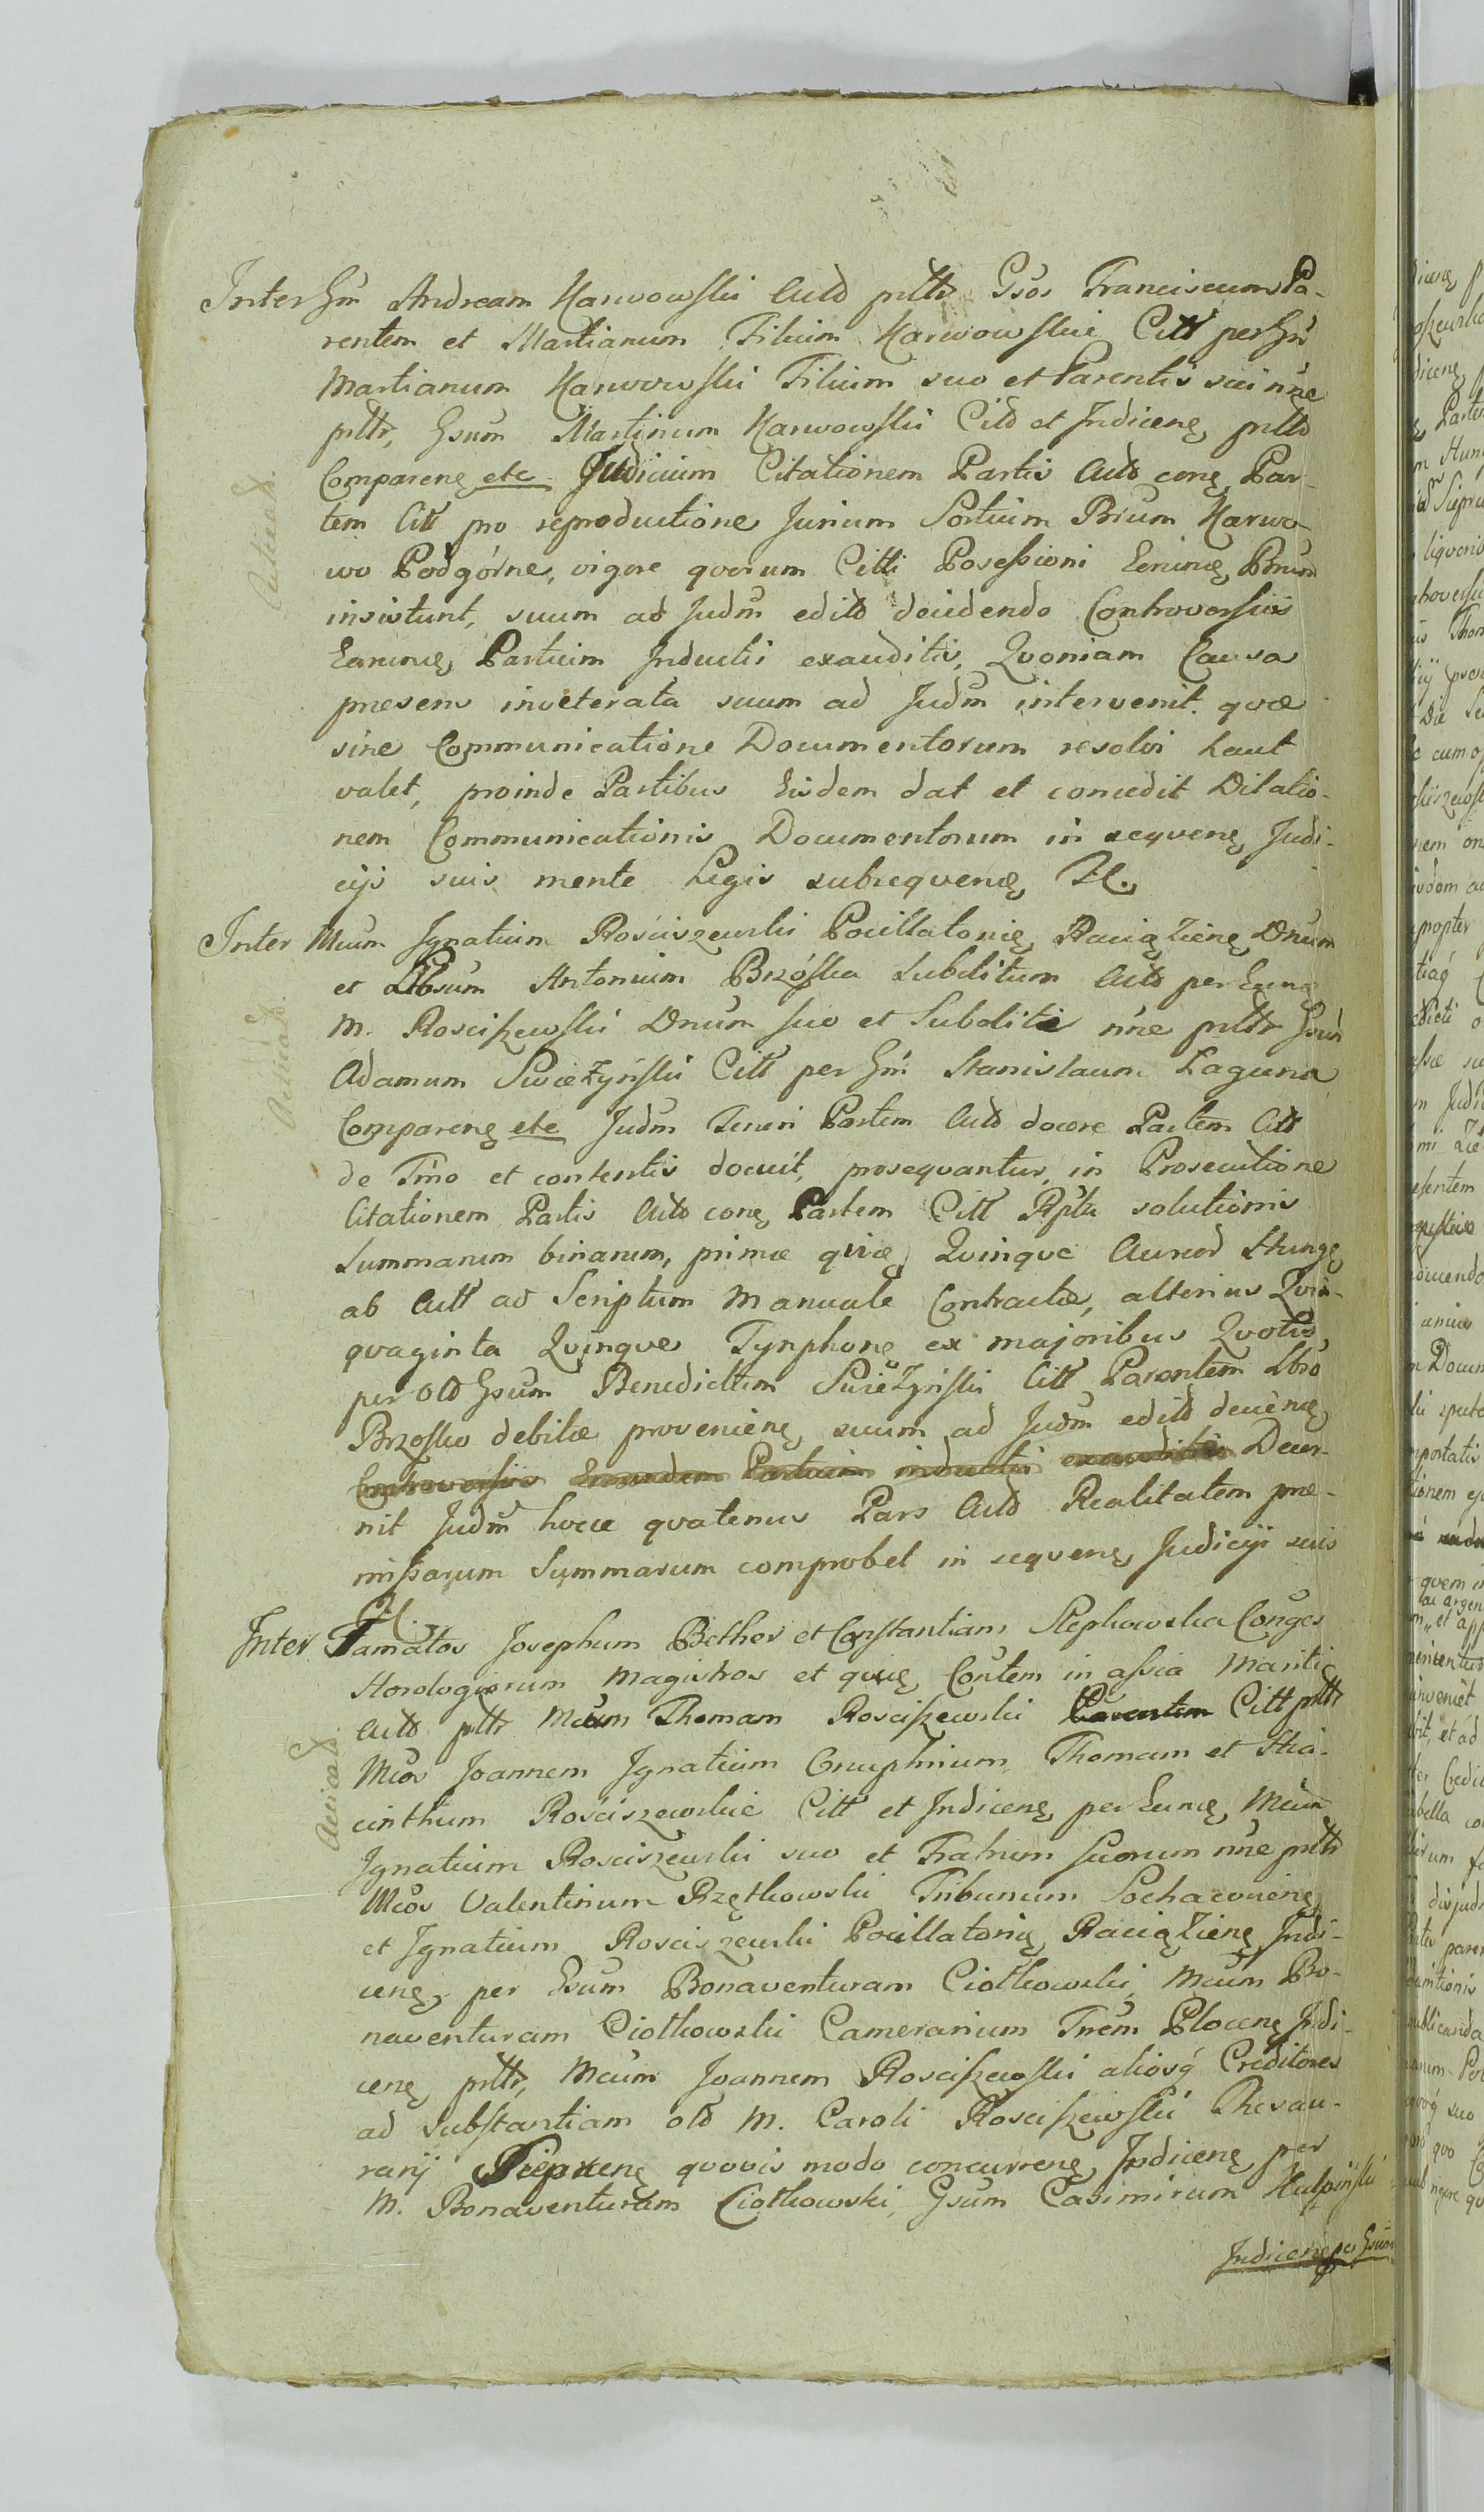 Inter Gm Andream Karwowski Actō prttr Gsos Franciscum Pa-
rentem et Martianum Filium Karwowskie Citt per Gm
Martianum Karwowski Filium suo et Parentis sui nne
prttr, Gsum Martinum Karwowski Citō et Judicenę prttō
Comparenę etc Judicium Citationem Partis Actō conę Par-
tem Citt pro reproductione Jurium Sortium Brum Karwo-
wo Podgórne, vigore quorum Citti Posessioni Earumę Bnum
insistunt, suum ad Judm editō decidendo Controversiis
Earumę Partium Inductis exauditis, Qvoniam Causa
presens inveterata suum ad Judm intervenit qvæ
sine Communicatione Documentorum resolvi haut
valet, proinde Partibus Eisdem dat et concedit Dilatio-
nem Communicationis Documentorum in seqvenę Judi-
cijs suis mente Legis subseqvenę
Inter Mcum Ignatium Rosciszewski Pocillatorię Raciążienę Dnum
et Lbsum Antonium Brzóska Subditum Actō per Eunę
M. Roscißewski Dnum suo et Subditi nne prttr Gsum
Adamum Swieżyński Citt per Gm Stanislaum Laguna
Comparenę etc Judm Teneri Partem Actō docere Partem Citt
de Tmo et contentis docuit, proseqvantur, in Prosecutione
Citationem Partis Actō conę Partem Citt Rptu solutionis
Summarum binarum, primæ qvię Qvinqve Aureor Hungę
ab Actt ad Scriptum Manuale Contractæ, alterius Qvin-
qvaginta Qvinqve Tynphonę ex majoribus Qvotis,
per Olō Gsum Benedictum Swieżyński Citt Parentem Lbro
Brzosko debitæ provenienę suum ad Judm editō decernę
Controversiis Earundem Partium inductis exauditis Decer-
nit Judm hocce qvatenus Pars Actō Realitatem præ-
missarum Summarum comprobet in seqvenę Judicijs suis
Inter Famatos Josephum Bether et Constantiam Stepkowska Conges
Horologiorum Magistros et qvię Contem in assia Mariti
Actō prttr Mcum Thomam Roscißewski Parentem Citt prttr
Mcos Joannem Ignatium Onuphrium, Thomam et Hia-
cinthum Rosciszewskie Citt et Indicenę per Eunę Mcum
Ignatium Rosciszewski suo et Fratrum suorum nne prttr
Mcos Valentinum Rzętkowski Tribunum Sochacovienę
et Ignatium Rosciszewski Pocillatorię Raciążienę Indi-
cenę, per Gsum Bonaventuram Ciołkowski, Mcum Bo-
naventuram Ciołkowski Camerarium Trem Plocenę Indi-
cenę prttr, Mcum Joannem Roscißewski aliosq Creditores
ad Substantiam olō M. Caroli Roscißewski Thesau-
rarij Sieprcenę qvovis modo concurrenę Indicenę per
M. Bonaventuram Ciołkowski, Gsum Casimirum
Indicenę per Gsum